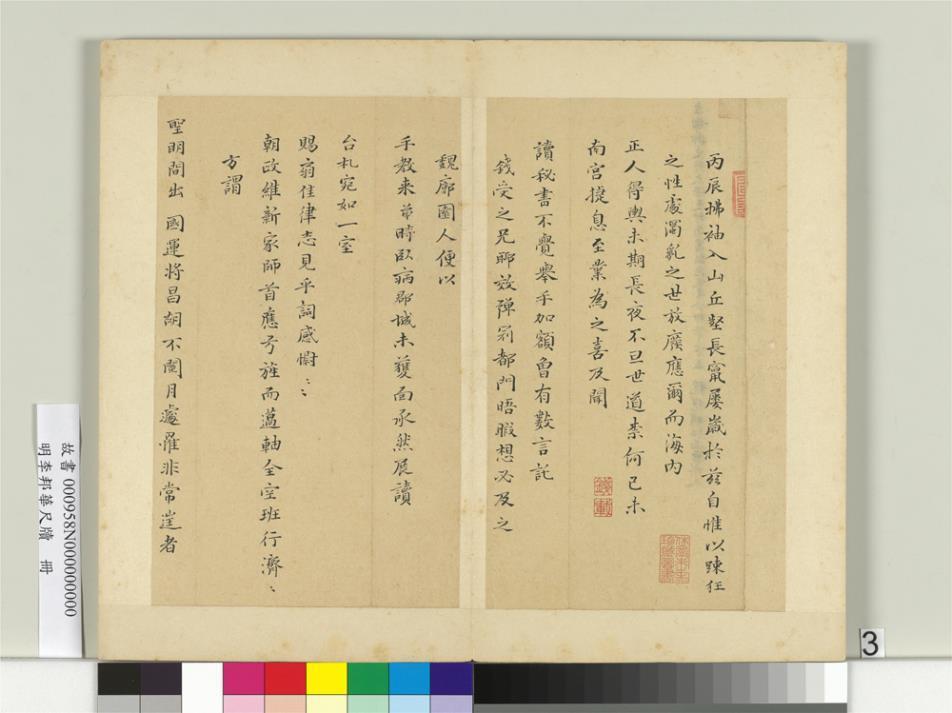 丙辰拂袖入山丘壑長甯屢歲於茲自惟以踈狂
之性處濁亂之世放廢應爾而海內
正人得輿未期長夜不旦世道柰何已未
南宮捷息至業為之喜及聞
讀秘書不覺舉手加額曾有數言託
錢受之兄郵效彈冠都門晤暇想必及之
魏廓園人便以
手教來華時臥病郡城未獲面承然展讀
台札宛如一室
賜翁佳律志見乎詞感慰〻
朝政維新家師首應弓旌而邁軸全空班行濟〻
方謂
聖明間出 國運將昌胡不閱月遽罹非常豈者
故書 000958N000000000
明李邦華尺牘 冊
3